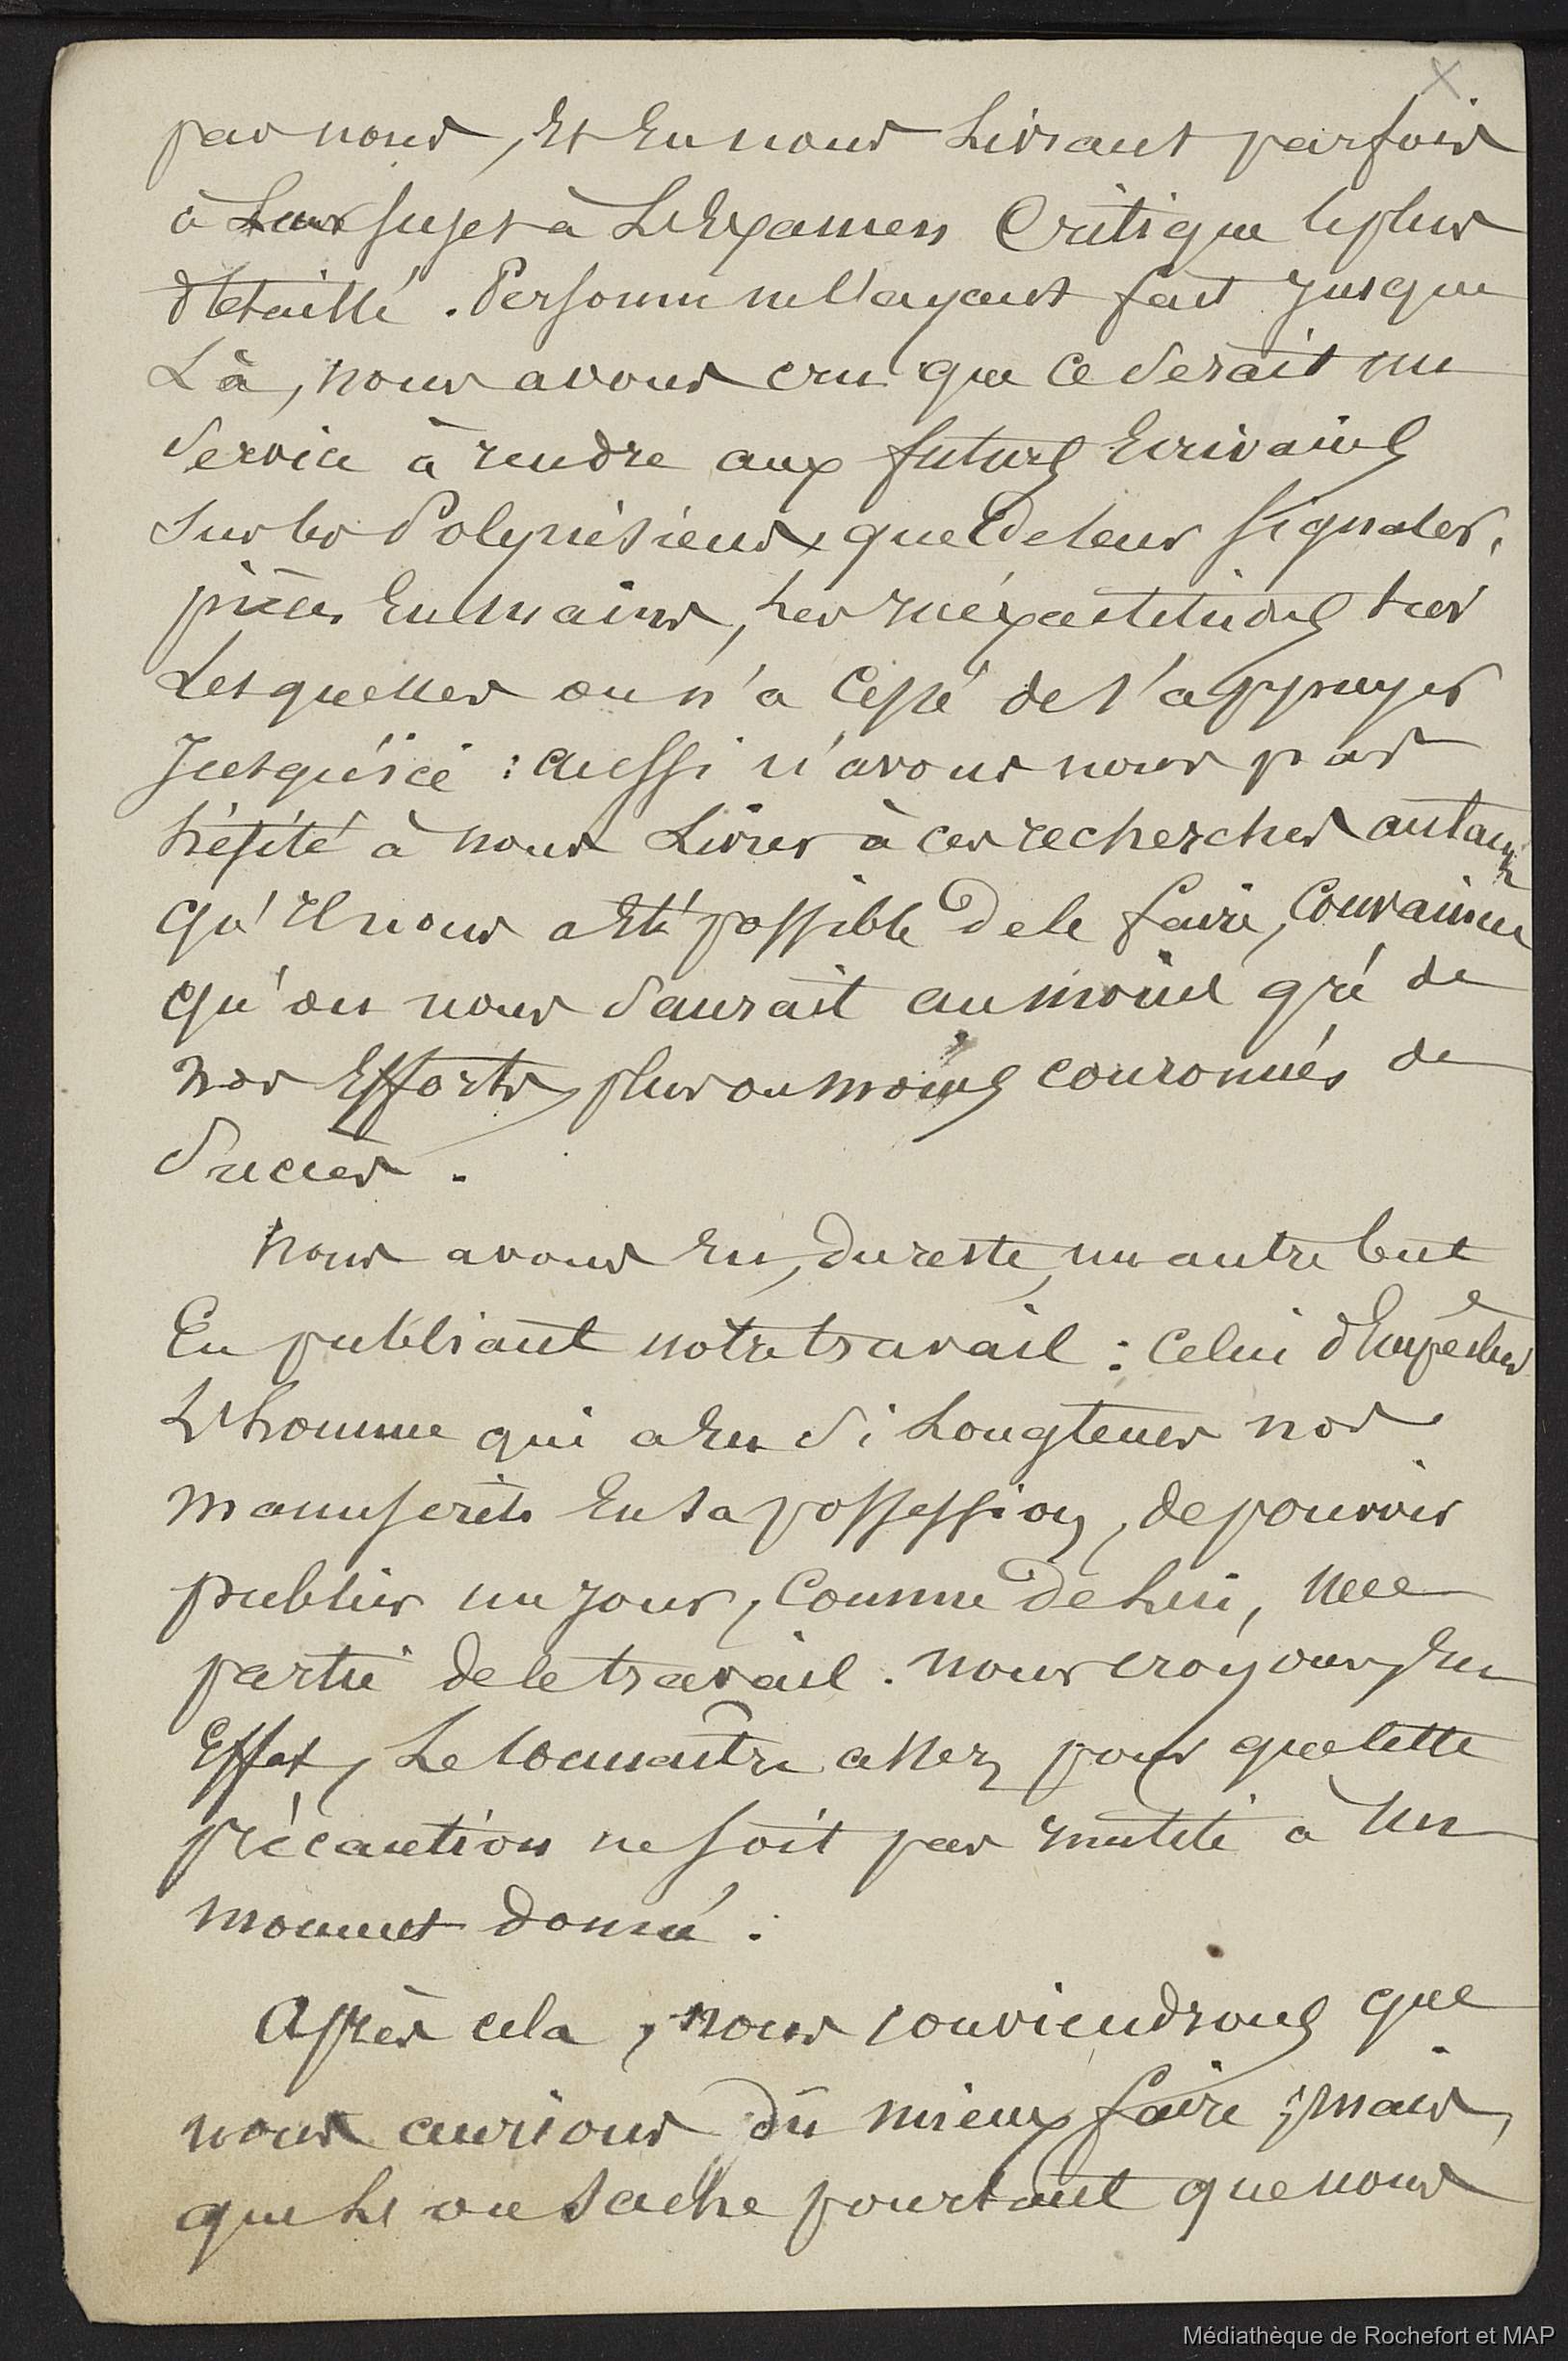 par nous, et en nous livrant parfois
à leur sujet à l'Examen Critique le plus
détaillé. Personne ne l'ayant fait jusque
là, nous avons cru que ce serait un
service à rendre aux futurs Ecrivains
sur les Polynésiens, que de leur signaler,
pièces en mains, les inéxactitudes sur
lesquelles on n'a cessé de s'appuyer
jusqu'ici : aussi n'avons nous pas
hésité à nous livrer à ces recherches autant
qu'il nous a été possible de le faire, convaincu
qu'on nous saurait au moins gré de
nos Efforts, plus ou moins couronnés de
succès.
Nous avons eu, du reste, un autre but
En publiant notre travail : celui d'Empêcher
L'homme qui a eu si longtems nos
manuscrits en sa possession, de pouvoir
publier un jour, comme de lui, une
partie de ce travail. nous croyons, En
Effet, Le connaitre assez pour que cette
précaution ne soit pas inutile à un
moment donné.
Après cela, nous conviendrons que
nous aurions dû mieux faire ; mais,
que l'on sache pourtant que nous
Médiathèque de Rochefort et MAP